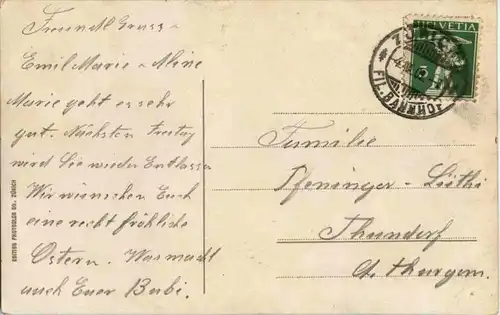 Freundl. Gruss -
Emil Marie - Aline
Marie geht es sehr
gut. Nächsten Freitag
wird Sie wieder Entlassen
Wir wünschen Euch
eine recht fröhliche
Ostern. Was macht
auch Euer Bubi.
EDITION PHOTOGLOB Co., ZÜRICH
HELVETIA
5
FIL. BAHNHOF
Familie
Pfeninger - Lüthi
Thundorf
Ct. Thurgau.